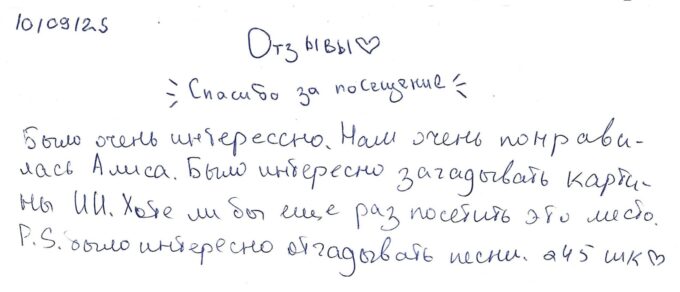 10/09/25
Отзывы♡
Спасибо за посещение
Было очень интерессно. Нам очень понрави-
лась Алиса. Было интересно загадывать карти-
ны ИИ. Хоте ли бы еще раз посетить это место.
P.S. было интересно отгадывать песни. 245 шк♡